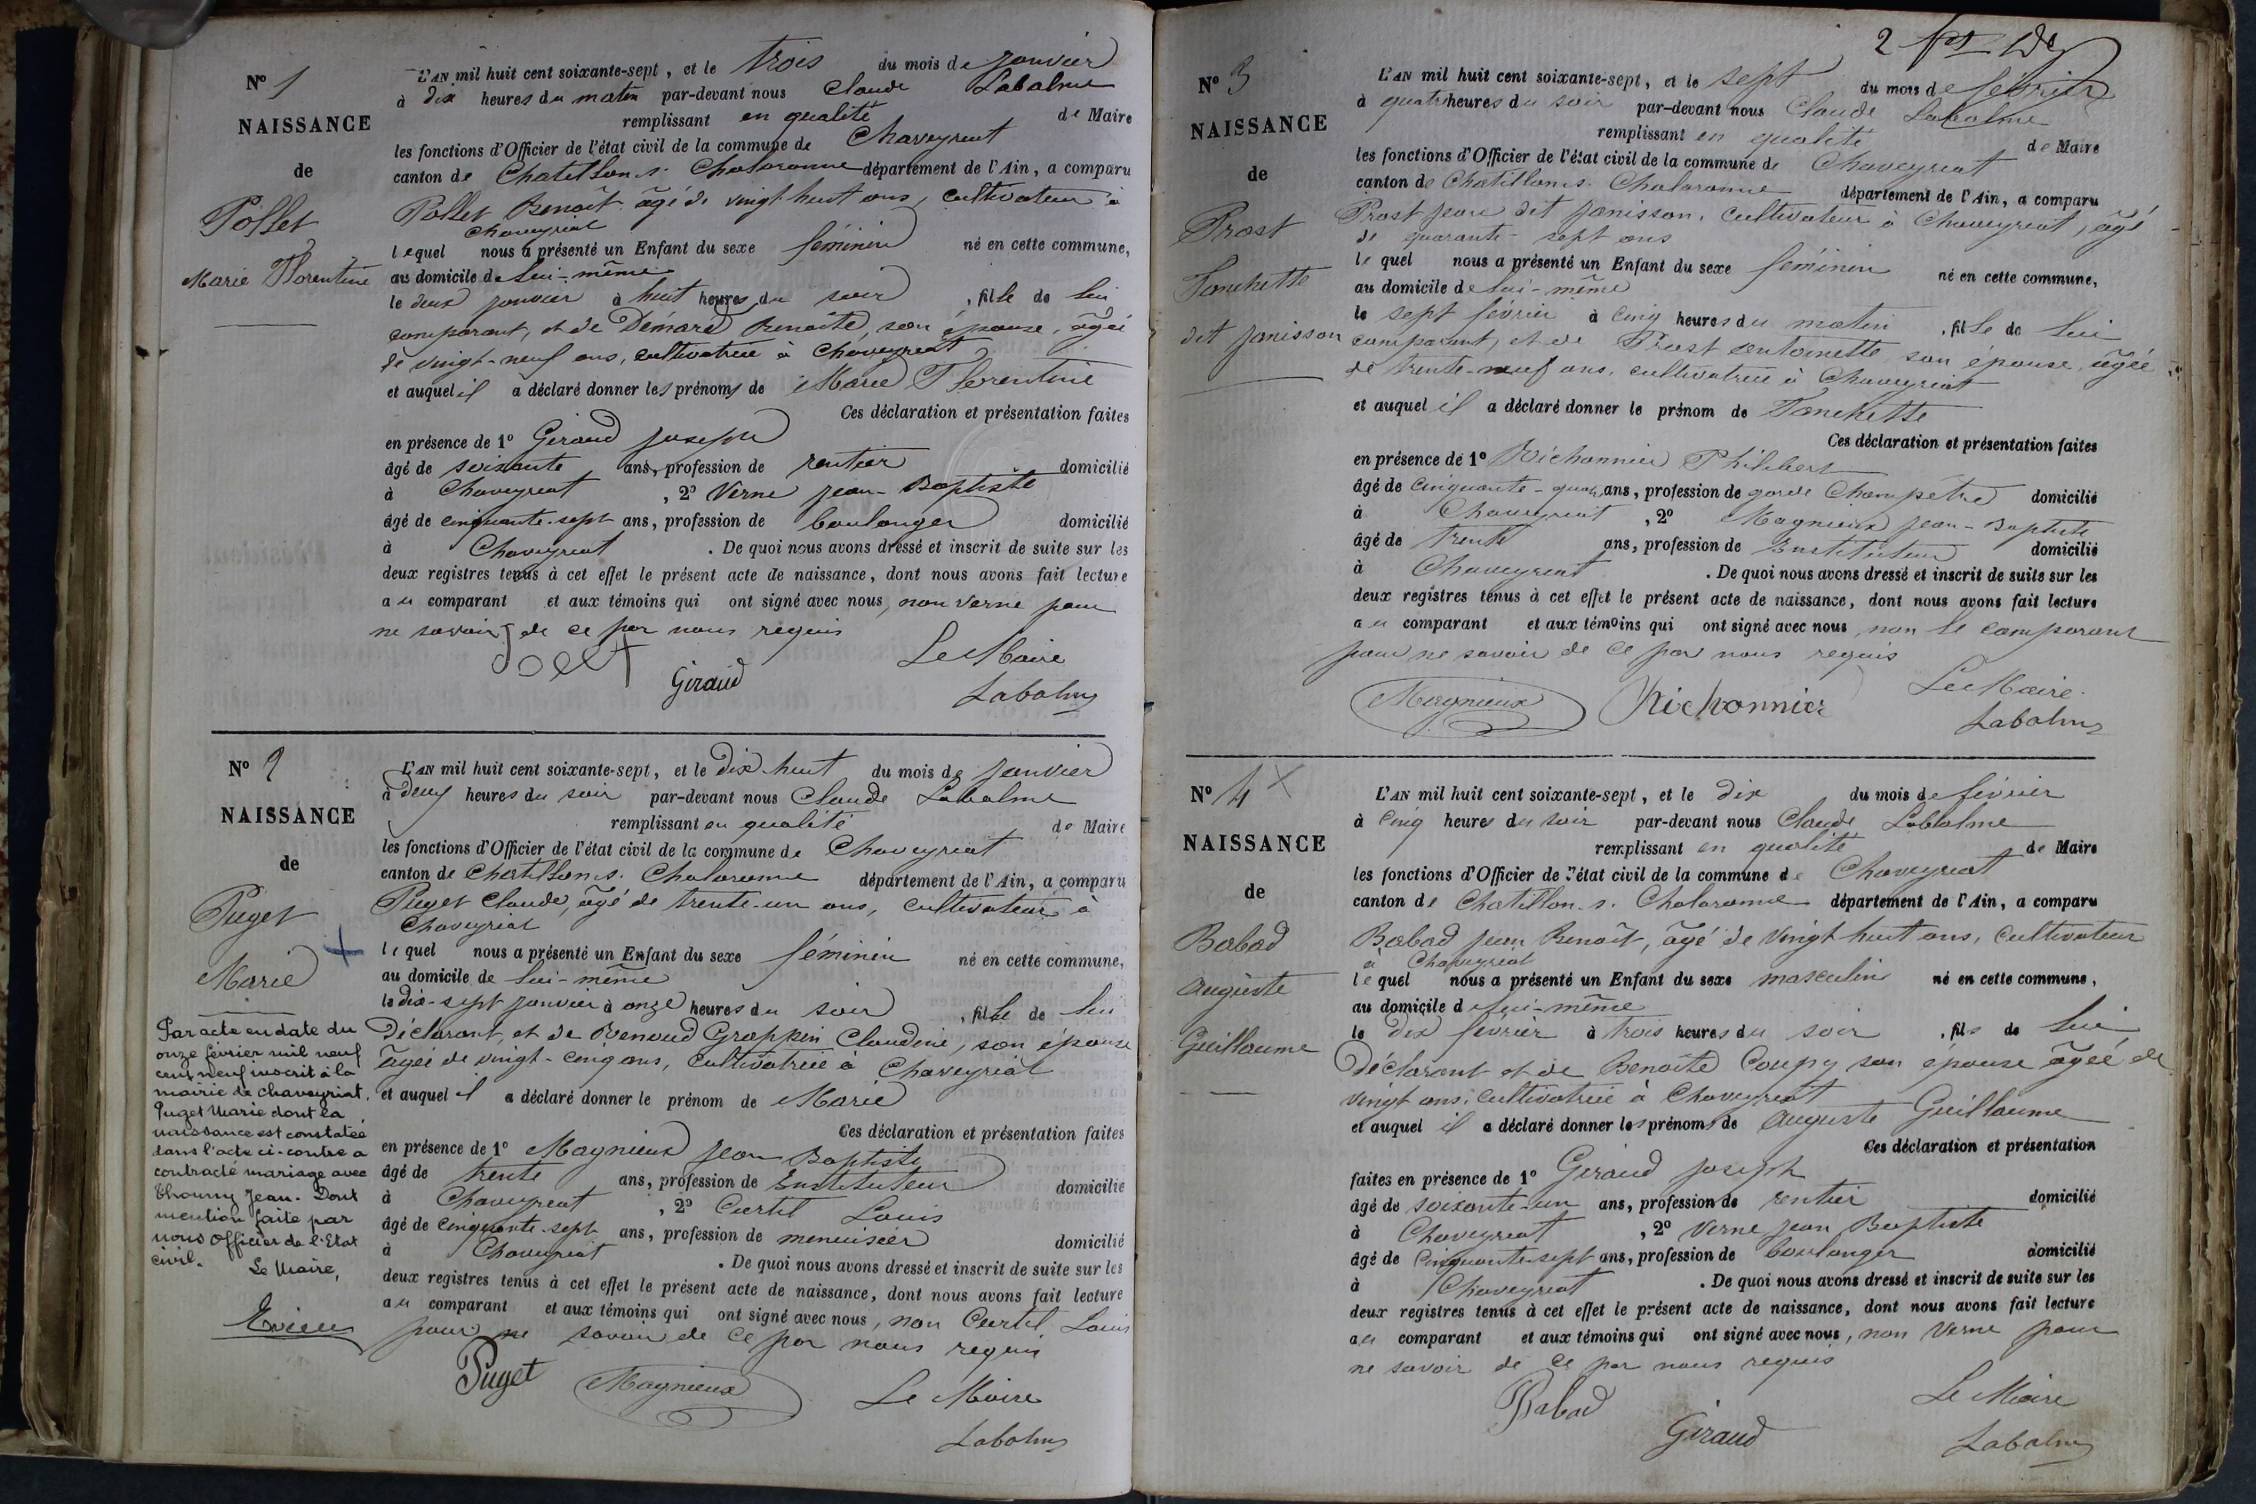 N° 1
NAISSANCE
de
Pollet
Marie Florentine
L'AN mil huit cent soixante-sept, et le trois du mois de janvier
à dix heures du matin par-devant nous Claude Labalme
remplissant en qualité de Maire
les fonctions d'Officier de l'état civil de la commune de Chaveyriat
canton de Chatillon s. Chalaronne département de l'Ain, a comparu
Pollet Benoît âgé de vingt huit ans, cultivateur à
Chaveyriat
lequel nous a présenté un Enfant du sexe féminin né en cette commune,
au domicile de lui-même
le deux janvier à huit heures du soir, fille de lui
comparant, et de Démaré Benoîte, son épouse, âgée
de vingt-neuf ans, cultivatrice à Chaveyriat
et auquel il a déclaré donner les prénoms de Marie Florentine
Ces déclaration et présentation faites
en présence de 1° Giraud joseph
âgé de soixante ans, profession de rentier domicilié
à Chaveyriat, 2° Verne jean-Baptiste
âgé de cinquante-sept ans, profession de boulanger domicilié
à Chaveyriat. De quoi nous avons dressé et inscrit de suite sur les
deux registres tenus à cet effet le présent acte de naissance, dont nous avons fait lecture
au comparant et aux témoins qui ont signé avec nous, non Verne pour
ne savoir de ce par nous requis
Giraud
Le Maire
Labalme
N° 2
NAISSANCE
de
Puget
Marie
L'AN mil huit cent soixante-sept, et le dix huit du mois de janvier
à deux heures du soir par-devant nous Claude Labalme
remplissant en qualité de Maire
les fonctions d'Officier de l'état civil de la commune de Chaveyriat
canton de Chatillon s. Chalaronne département de l'Ain, a comparu
Puget Claude, âgé de trente-un ans, cultivateur à
Chaveyriat
lequel nous a présenté un Enfant du sexe féminin né en cette commune,
au domicile de lui-même
le dix-sept janvier à onze heures du soir, fille de lui
Déclarant, et de Renoud Grappin Claudine, son épouse
âgée de vingt-cinq ans, cultivatrice à Chaveyriat
et auquel il a déclaré donner le prénom de Marie
Ces déclaration et présentation faites
en présence de 1° Magnieux jean Baptiste
âgé de trente ans, profession de Instituteur domicilié
à Chaveyriat, 2° Curtil Louis
âgé de cinquante-sept ans, profession de menuisier domicilié
à Chaveyriat. De quoi nous avons dressé et inscrit de suite sur les
deux registres tenus à cet effet le présent acte de naissance, dont nous avons fait lecture
au comparant et aux témoins qui ont signé avec nous, non Curtil Louis
pour ne savoir de ce par nous requis
Puget
Magnieux
Le Maire
Labalme
Par acte en date du
onze février mil neuf
cent neuf inscrit à la
mairie de chaveyriat,
Puget Marie dont la
naissance est constatée
dans l'acte ci-contre a
contracté mariage avec
Thoumy Jean. Dont
mention faite par
nous Officier de l'Etat
civil. Le Maire,
2
N° 3
NAISSANCE
de
Prost
Fanchette
dit janisson
L'AN mil huit cent soixante-sept, et le sept du mois de février
à quatre heures du soir par-devant nous Claude Labalme
remplissant en qualité de Maire
les fonctions d'Officier de l'état civil de la commune de Chaveyriat
canton de Chatillon s. Chalaronne département de l'Ain, a comparu
Prost jean dit janisson, cultivateur à Chaveyriat, âgé
de quarante-sept ans
lequel nous a présenté un Enfant du sexe féminin né en cette commune,
au domicile de lui-même
le sept février à cinq heures du matin, fille de lui
comparant, et de Prost antoinette son épouse, âgée
de trente-neuf ans, cultivatrice à Chaveyriat
et auquel il a déclaré donner le prénom de Fanchette
Ces déclaration et présentation faites
en présence de 1° Richonnier Philibert
âgé de cinquante-quatre ans, profession de garde Champêtre domicilié
à Chaveyriat, 2° Magnieux jean-Baptiste
âgé de trente ans, profession de Instituteur domicilié
à Chaveyriat. De quoi nous avons dressé et inscrit de suite sur les
deux registres tenus à cet effet le présent acte de naissance, dont nous avons fait lecture
au comparant et aux témoins qui ont signé avec nous, non le comparant
pour ne savoir de ce par nous requis
Magnieux
Richonnier
Le Maire
Labalme
N° 4
NAISSANCE
de
Babad
auguste
Guillaume
L'AN mil huit cent soixante-sept, et le dix du mois de février
à cinq heures du soir par-devant nous Claude Labalme
remplissant en qualité de Maire
les fonctions d'Officier de l'état civil de la commune de Chaveyriat
canton de Chatillon s. Chalaronne département de l'Ain, a comparu
Babad jean Benoît, âgé de vingt huit ans, cultivateur
à Chaveyriat
lequel nous a présenté un Enfant du sexe masculin né en cette commune,
au domicile de lui-même
le dix février à trois heures du soir, fils de lui
Déclarant et de Benoîte Coupy son épouse âgée de
vingt ans, cultivatrice à Chaveyriat
et auquel il a déclaré donner les prénoms de auguste Guillaume
Ces déclaration et présentation
faites en présence de 1° Giraud joseph
âgé de soixante-un ans, profession de rentier domicilié
à Chaveyriat, 2° Verne jean Baptiste
âgé de cinquante-sept ans, profession de boulanger domicilié
à Chaveyriat. De quoi nous avons dressé et inscrit de suite sur les
deux registres tenus à cet effet le présent acte de naissance, dont nous avons fait lecture
au comparant et aux témoins qui ont signé avec nous, non Verne pour
ne savoir de ce par nous requis
Babad
Giraud
Le Maire
Labalme